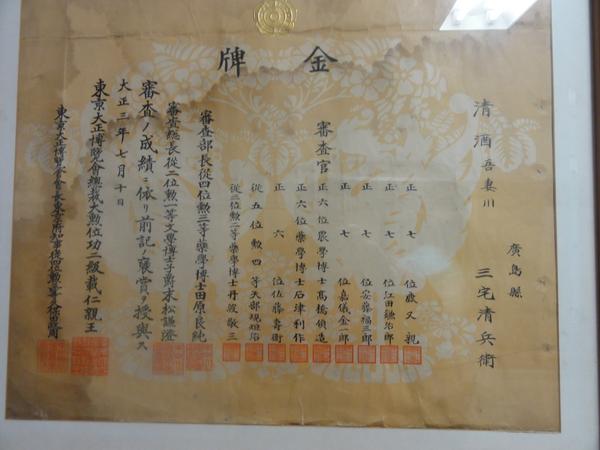 金牌
廣島縣
三宅清兵衛
清酒 吾妻川
審査官
正七位 鹿又親
正七位 江田鎌治郎
正七位 安藤福三郎
正七位 嘉儀金一郎
正六位 農學博士 高橋偵造
正六位 藥學博士 石津利作
正六位 佐藤壽衛
從五位勲四等 矢部規矩治
從三位勲二等 藥學博士 丹波敬三
審査部長 從四位勲三等 藥學博士 田原良純
審査總長 從二位勲一等 文學博士 子爵 末松謙澄
審査ノ成績ニ依リ前記ノ褒賞ヲ授與ス
大正三年七月十日
東京大正博覽會總裁大勲位功二級載仁親王
東京大正博覽會會長東京府知事從四位勲三等